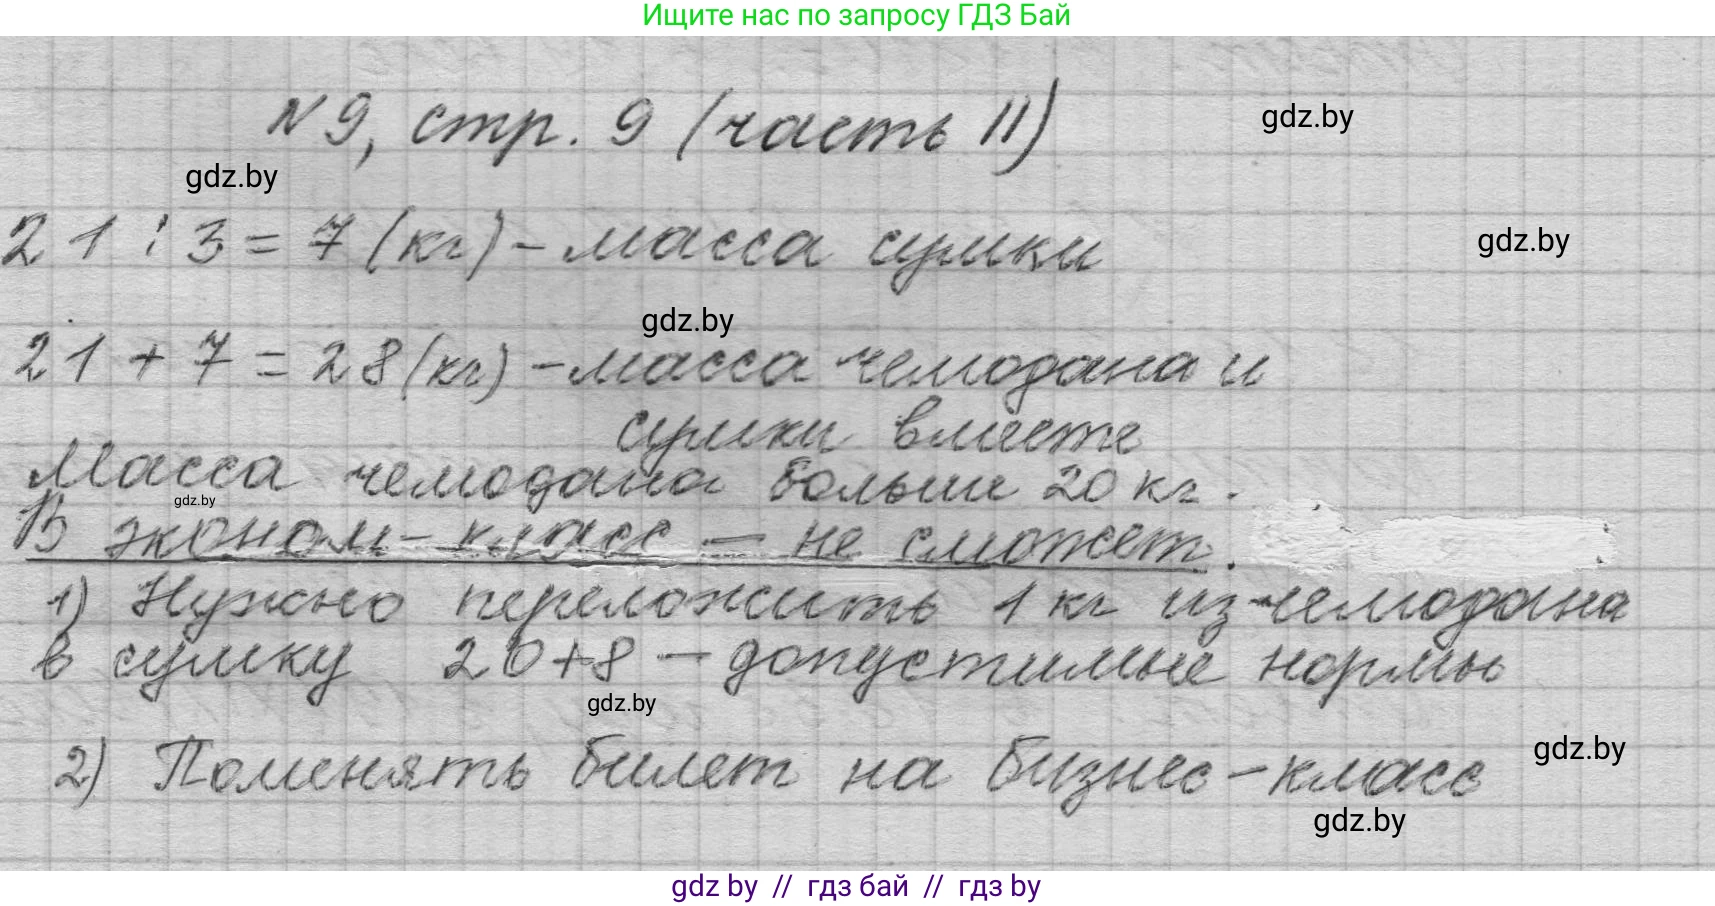 Ищите нас по запросу ГДЗ Бай
N 9, стр. 9 (часть II)
gdz.by
gdz.by
21 : 3 = 7 (кг) - масса сумки
gdz.by
gdz.by
21 + 7 = 28 (кг) - масса чемодана и
сумки вместе
Масса чемодана больше 20 кг.
gdz.by
В эконом-класс - не сможет.
1) Нужно переложить 1 кг из чемодана
в сумку 20+8 - допустимые нормы
gdz.by
2) Поменять билет на бизнес-класс
gdz.by
gdz.by
gdz by // гдз бай // гдз by